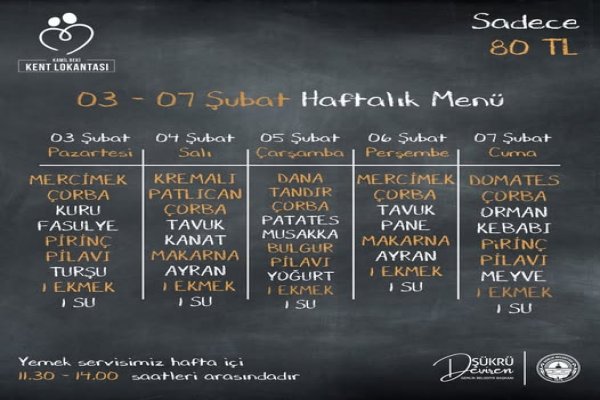 Sadece
80 TL
KAMİL BEKİ
KENT LOKANTASI
03 - 07 Şubat Haftalık Menü
03 Şubat
Pazartesi
MERCİMEK
ÇORBA
KURU
FASULYE
PİRİNÇ
PİLAVI
TURŞU
1 EKMEK
1 SU
04 Şubat
Salı
KREMALI
PATLICAN
ÇORBA
TAVUK
KANAT
MAKARNA
AYRAN
1 EKMEK
1 SU
05 Şubat
Çarşamba
DANA
TANDIR
ÇORBA
PATATES
MUSAKKA
BULGUR
PİLAVI
YOĞURT
1 EKMEK
1 SU
06 Şubat
Perşembe
MERCİMEK
ÇORBA
TAVUK
PANE
MAKARNA
AYRAN
1 EKMEK
1 SU
07 Şubat
Cuma
DOMATES
ÇORBA
ORMAN
KEBABI
PİRİNÇ
PİLAVI
MEYVE
1 EKMEK
1 SU
Yemek servisimiz hafta içi
11.30 - 14.00 saatleri arasındadır
ŞÜKRÜ
Deviren
GEMLİK BELEDİYE BAŞKANI